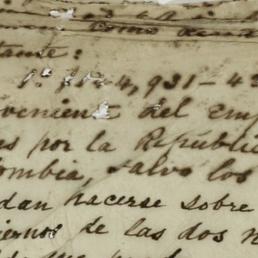 como
tante:
1º 114,931-42
veniente del emp
as por la Repúblic
lombia, salvo los
dan hacerse sobre
iernos de las dos n